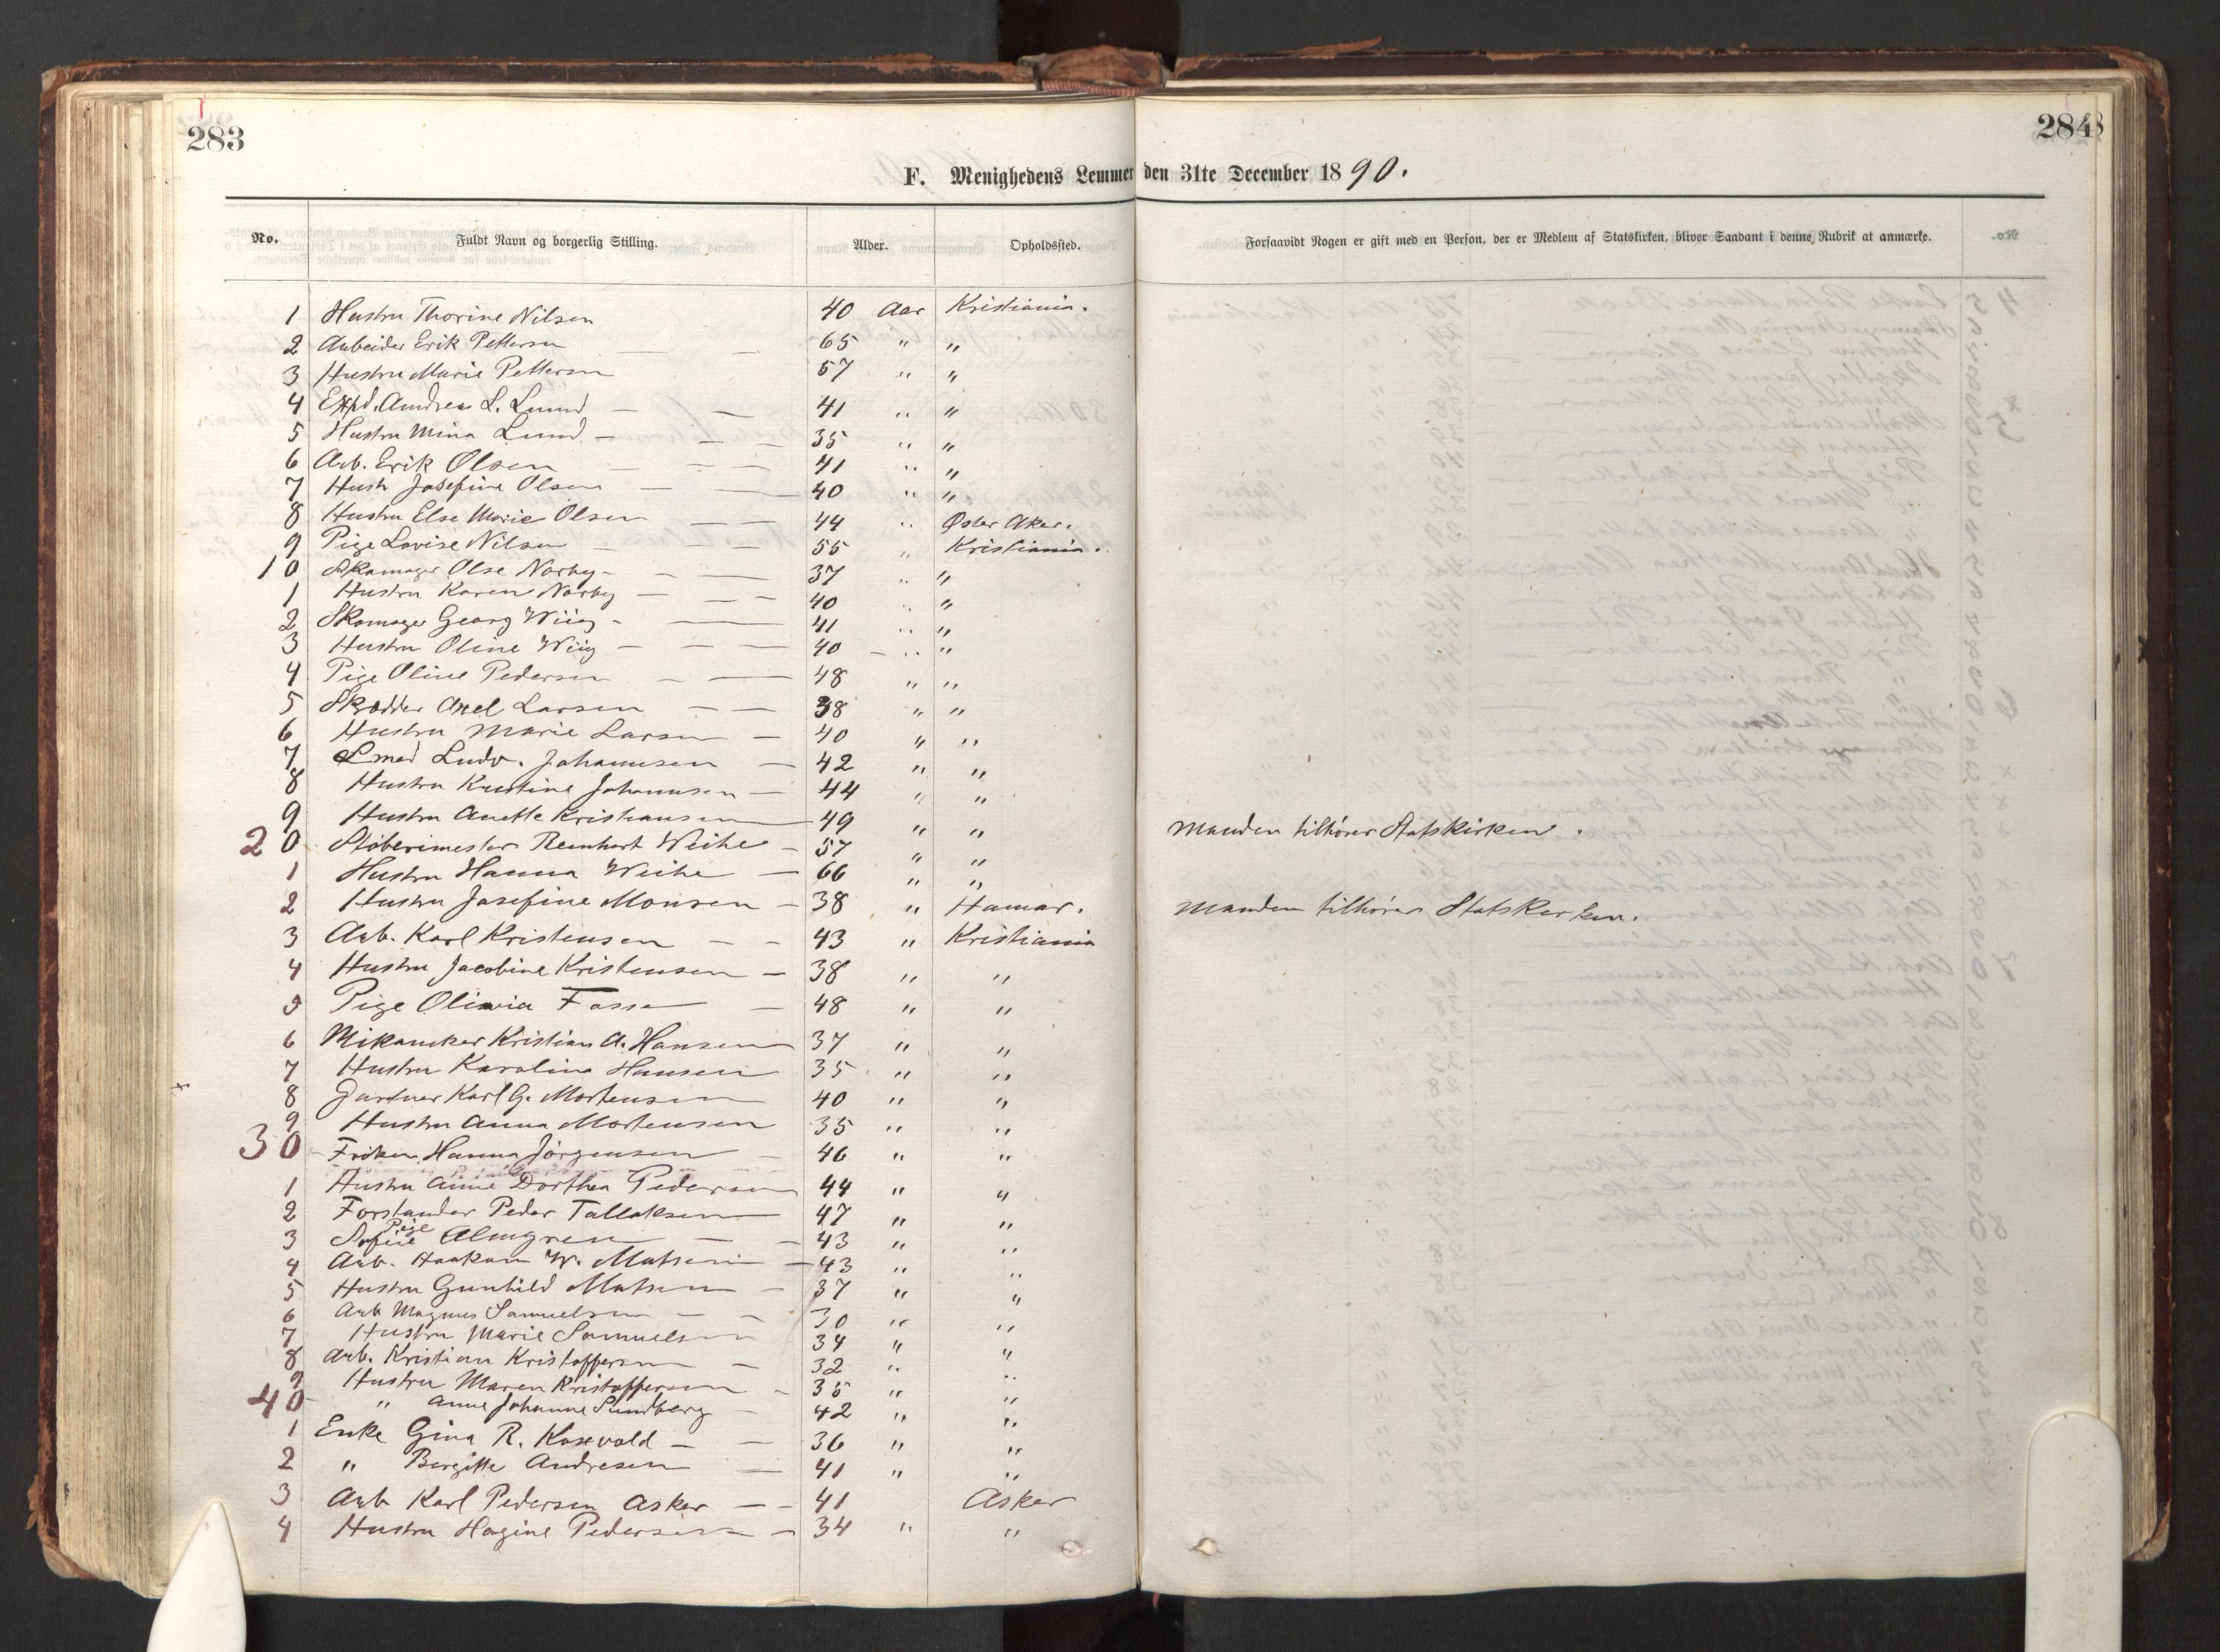 283
284
F. Menighedens Lemmer den 31te December 1890.
No. Fuldt Navn og borgerlig Stilling. Alder. Opholdssted. Forsaavidt Nogen er gift med en Person, der er Medlem af Statskirken, bliver Saadant i denne Rubrik at anmærke.
1 Hustru Thorine Nilsen 40 Aar Kristiania.
2 Arbeider Erik Pettersen — — 65 " "
3 Hustru Marie Pettersen 57 " "
4 Expd. Andreas L. Lund — — 41 " "
5 Hustru Mina Lund — — — 35 " "
6 Arb. Erik Olsen — — — 41 " "
7 Hustr Josefine Olsen — — 40 " "
8 Hustru Else Marie Olsen — — 44 " Øster Aker.
9 Pige Lovise Nilsen — — — 55 " Kristiania.
10 Skomager Olse Norby — — — 37 " "
1 Hustru Karen Norby — — — 40 " "
2 Skomager Georg Wiig — — 41 " "
3 Hustru Oline Wiig — — — 40 — " "
4 Pige Oline Pedersen — — 48 " "
5 Skrædder Axel Larsen — — 38 " "
6 Hustru Marie Larsen — 40 " "
7 Ludv. Johannesen — 42 " "
8 Hustru Kristine Johannesen — 44 " "
9 Hustru Anette Kristiansen 49 " " Manden tilhører Statskirken.
20 Støberimester Reinhart Weihe — 57 " "
1 Hustru Hanna Weihe — 66 " "
2 Hustru Josefine Monsen — 38 " Hamar. Manden tilhører Statskerken.
3 Arb. Karl Kristensen — — 43 " Kristiania
4 Hustru Jacobine Kristensen — 38 " "
5 Pige Olivia Fosse — 48 " "
6 Mikaniker Kristian A. Hansen 37 " "
7 Hustru Karoline Hansen 35 " "
x
8 Gartner Karl G. Mortensen 40 " "
9 Hustru Anna Mortensen 35 " "
30 Frøken Hanna Jørgensen — 46 " "
1 Hustru Anne Dorthea Pedersen 44 " "
2 Forstander Peder Tallaksen 47 " "
3 Pige Sofie Almgren — — 43 " "
4 Arb. Haakon W. Matsen — 43 " "
5 Hustru Gunhild Matsen — 37 " "
6 Arb Magnus Samuelsen — — 30 " "
7 Hustru Marie Samuelsen 34 " "
8 Arb. Kristian Kristoffersen — 32 " "
9 Hustru Maren Kristoffersen — 35 " "
40 " Anne Johanne Sundberg — 42 " "
1 Enke Gina R. Kosevold — — 36 " "
2 " Bergitte Andresen — 41 " "
3 Arb Karl Pedersen Asker — — 41 Asker
4 Hustru Hagine Pedersen — 34 " "